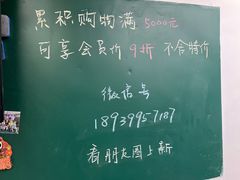 累积购物满 5000元
可享会员价 9折 不含特价
微信号
18939957187
看朋友圈上新